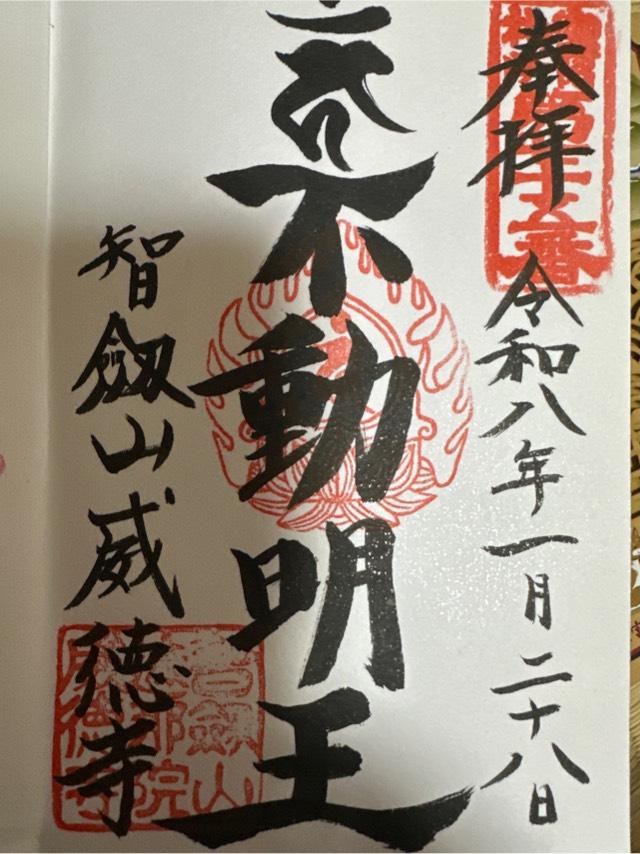 奉拝
令和八年一月二十八日
不動明王
智劔山威徳寺